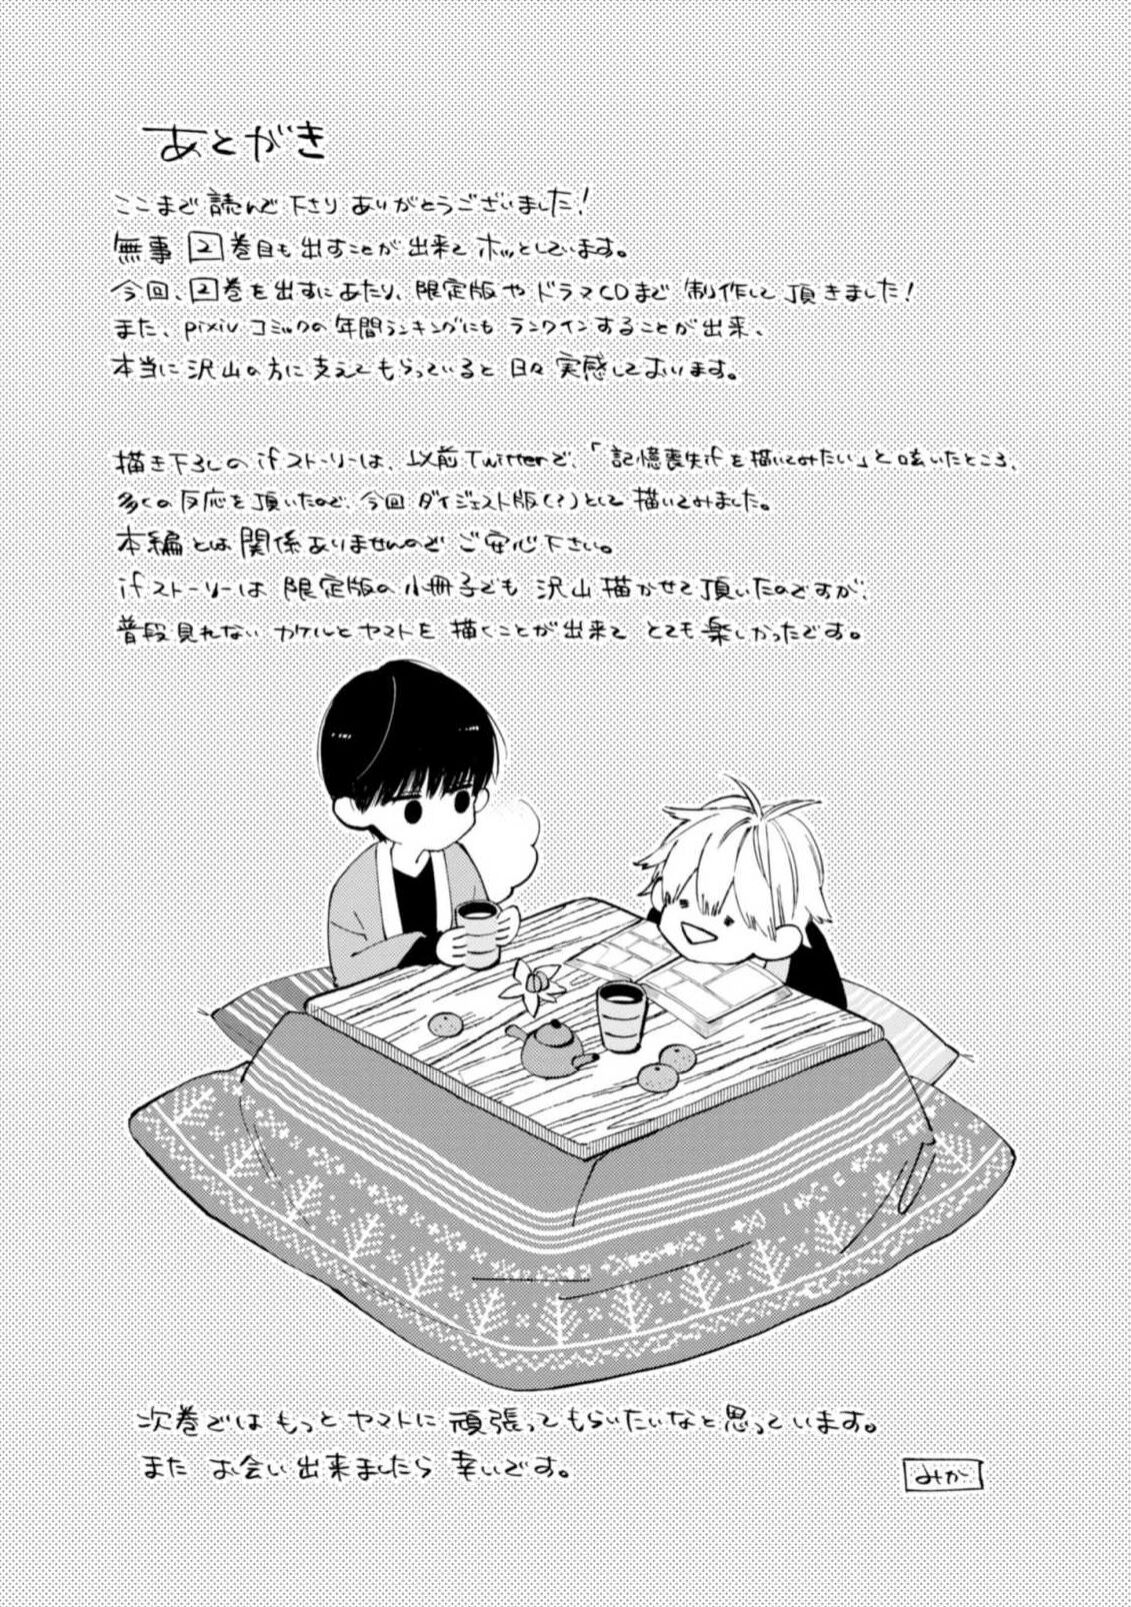 あとがき
ここまで読んで下さりありがとうございました!
無事2巻目も出すことが出来てホッとしています。
今回、2巻を出すにあたり、限定版やドラマCDまで制作して頂きました!
また、pixivコミックの年間ランキングにもランクインすることが出来、
本当に沢山の方に支えてもらっていると日々実感しております。
描き下ろしのifストーリーは、以前Twitterで、「記憶喪失ifを描いてみたい」と呟いたところ、
多くの反応を頂いたので、今回ダイジェスト版(?)として描いてみました。
本編とは関係ありませんのでご安心下さい。
ifストーリーは限定版の小冊子でも沢山描かせて頂いたのですが、
普段見れないカケルとヤマトを描くことが出来てとても楽しかったです。
次巻ではもっとヤマトに頑張ってもらいたいなと思っています。
またお会い出来ましたら幸いです。
みか